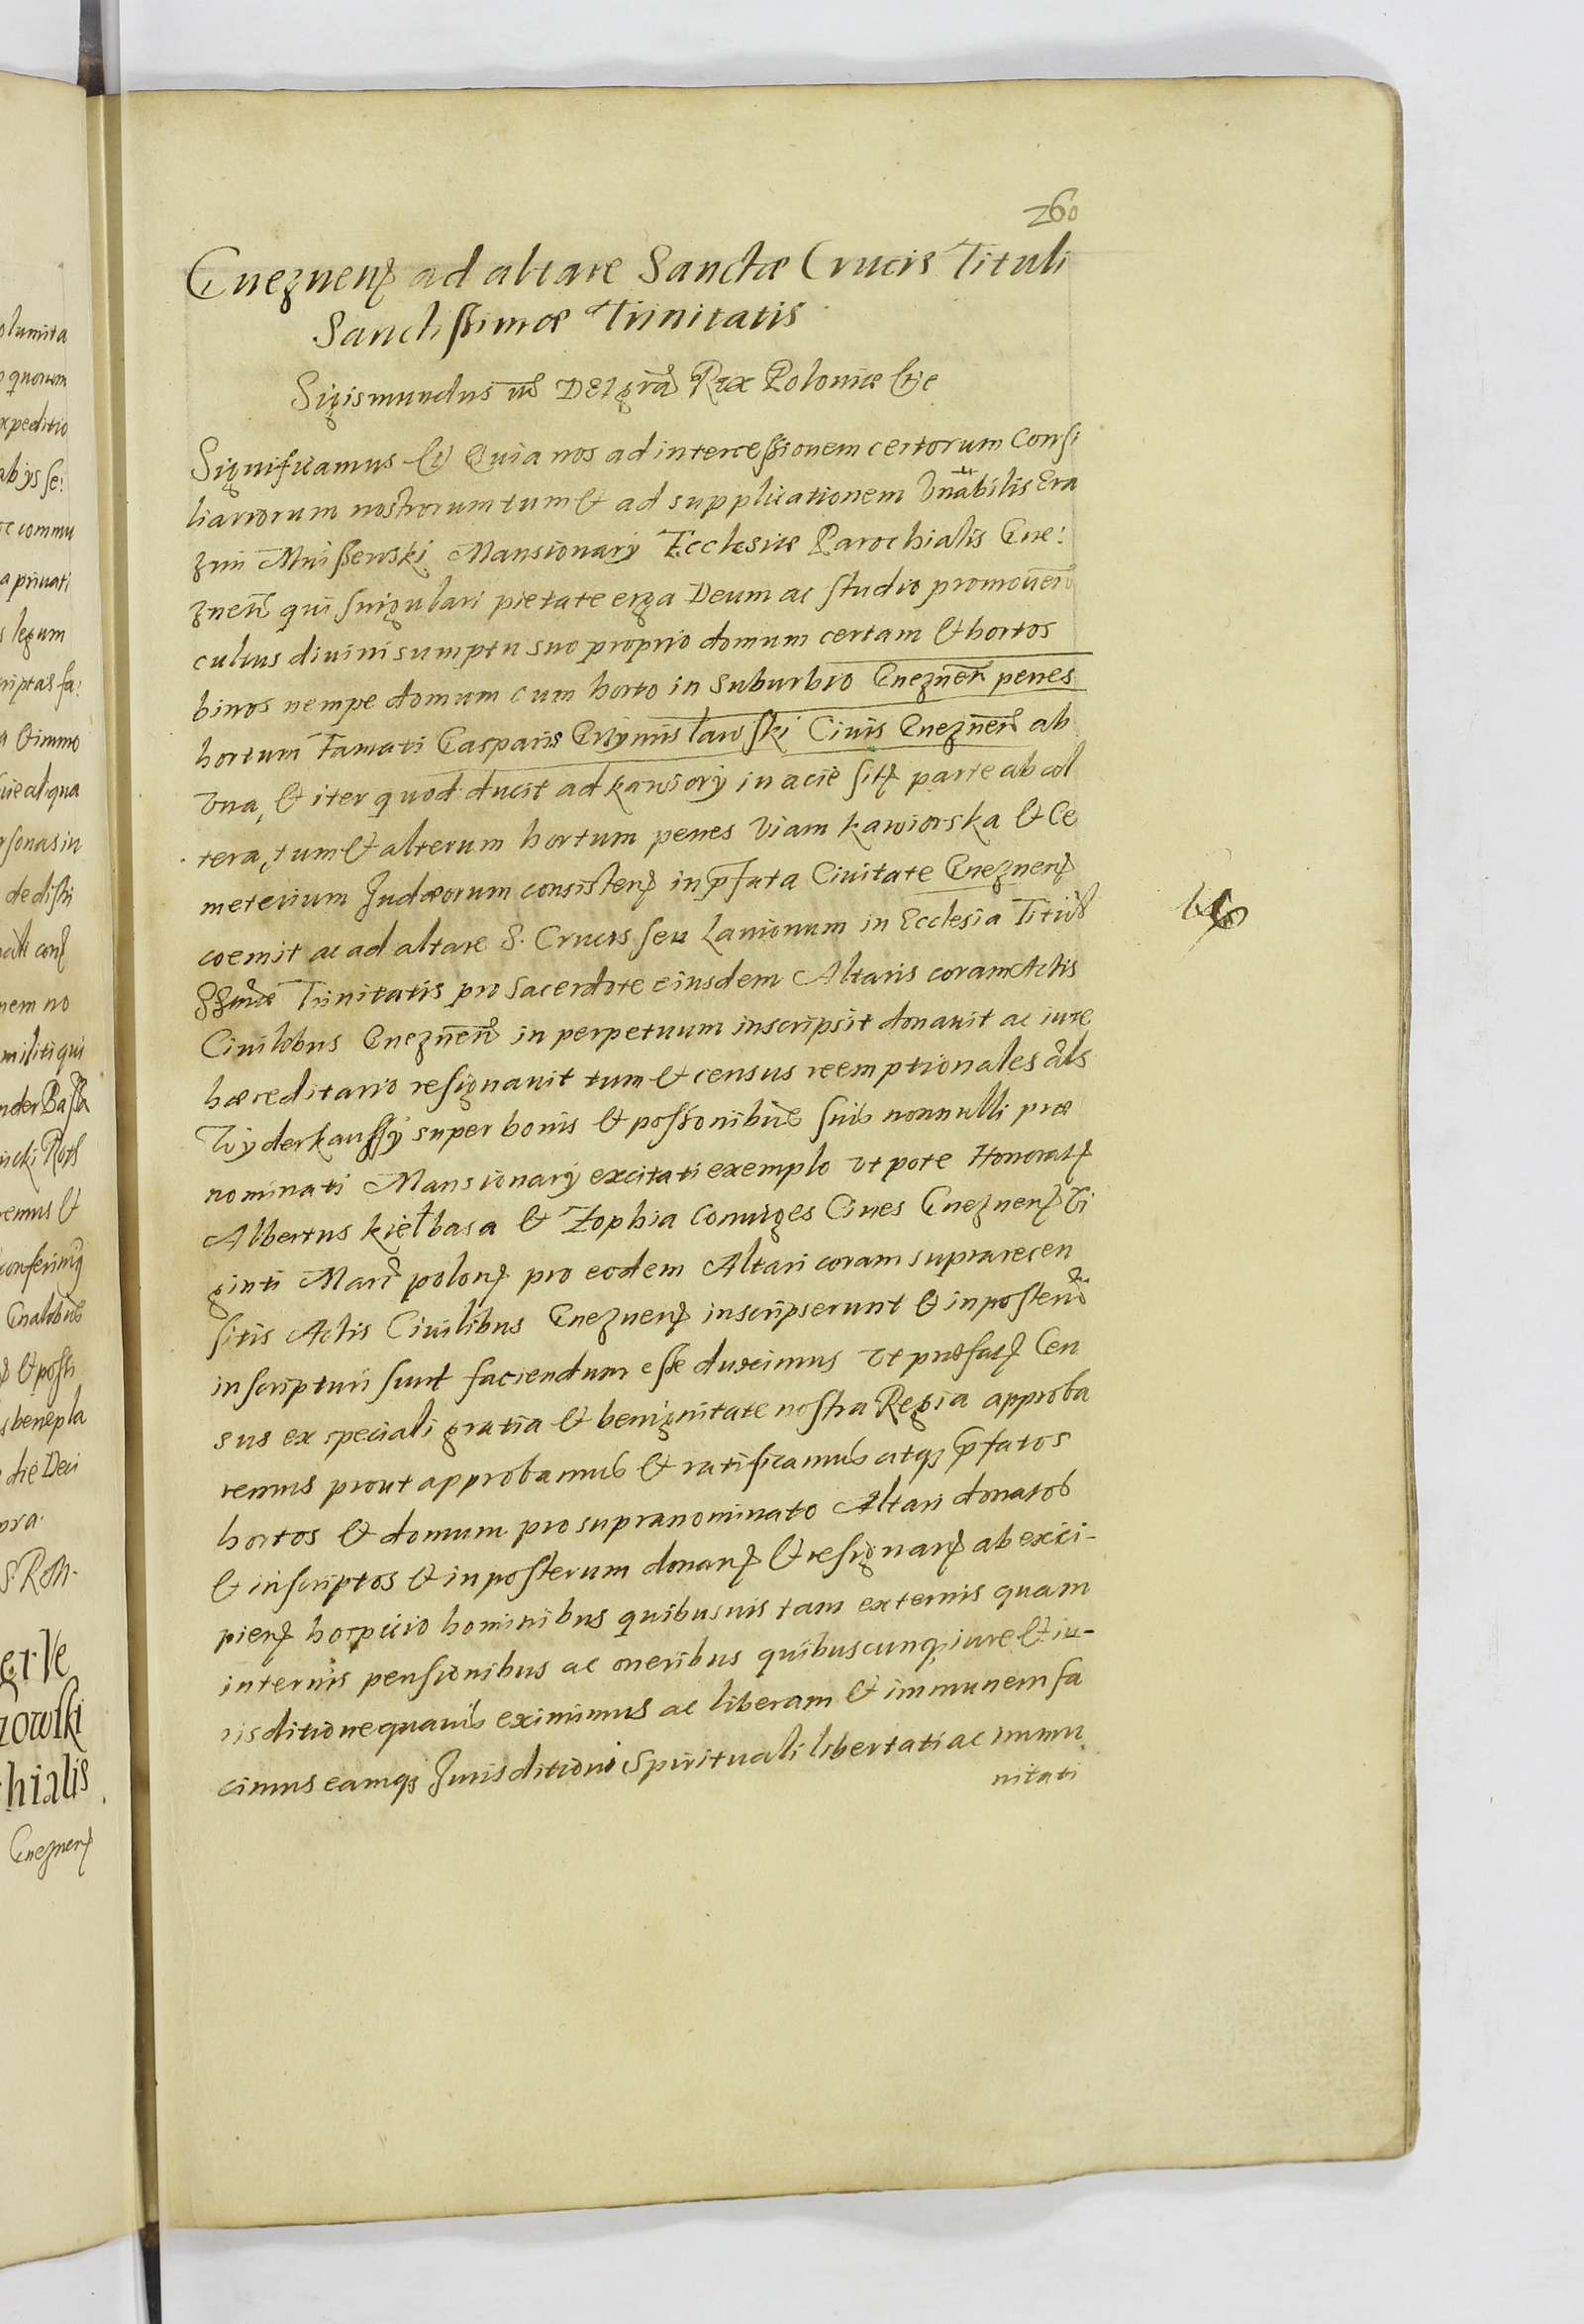 260
Gneznens ad altare Sanctæ Crucis Tituli
Sanctissimæ Trinitatis
Sigismundus Dei grã Rex Poloniæ &c
Significamus &c Quia nos ad intercessionem certorum Consi
liariorum nostrorum tum & ad supplicationem Vnãbilis Era
zmi Mnissewski Mansionarij Ecclesiæ Parochialis Gne:
znen qui singulari pietate erga Deum ac studio promouen
cultus diuini sumptu suo proprio domum certam & hortos
binos nempe domum cum horto in suburbio Gneznen penes
hortum Famati Casparis Grzymislawski Ciuis Gneznen ab
vna, & iter quod ducit ad kawiory in acie sit parte ab al
tera, tum & alterum hortum penes viam kawiorska & Ce
meterium Judæorum consisten in pfata Ciuitate Gneznen
coemit ac ad altare S. Crucis seu Lanionum in Ecclesia Tituli
SSmæ Trinitatis pro sacerdote eiusdem Altaris coram Actis
Ciuilibus Gneznen in perpetuum inscripsit donauit ac iure
hæreditario resignauit tum & census reemptionales als
Wyderkauffy super bonis & possonibus suis nonnulli præ
nominati Mansionarij excitati exemplo vt pote Honorat
Albertus kiełbasa & Zophia Coniuges Ciues Gneznen Vi
ginti Marc polon pro eodem Altari coram suprarecen
sitis Actis Ciuilibus Gneznen inscripserunt & in posterũ
inscripturi sunt faciendum esse duximus vt præfat Cen
sus ex speciali gratia & benignitate nostra Regia approba
remus prout approbamus & ratificamus atq pfatos
hortos & domum pro supranominato Altari donatos
& inscriptos & in posterum donan & resignan ab exci-
pien hospicio hominibus quibusuis tam externis quam
internis pensionibus ac oneribus quibuscunq iure & iu-
risditione quauis eximimus ac liberam & immunem fa
cimus eamq Jurisditioni Spirituali libertati ac immu
nitati
olumita
quorum
xpeditio
abijs se:
commu
a priuati
legum
riptas fa:
& immo
aliqua
rsonas in
nem no
militi qui
emus &
& possi
benepla
die Deci
pra.
S. R. M.
zowski
hialis
Gneznen